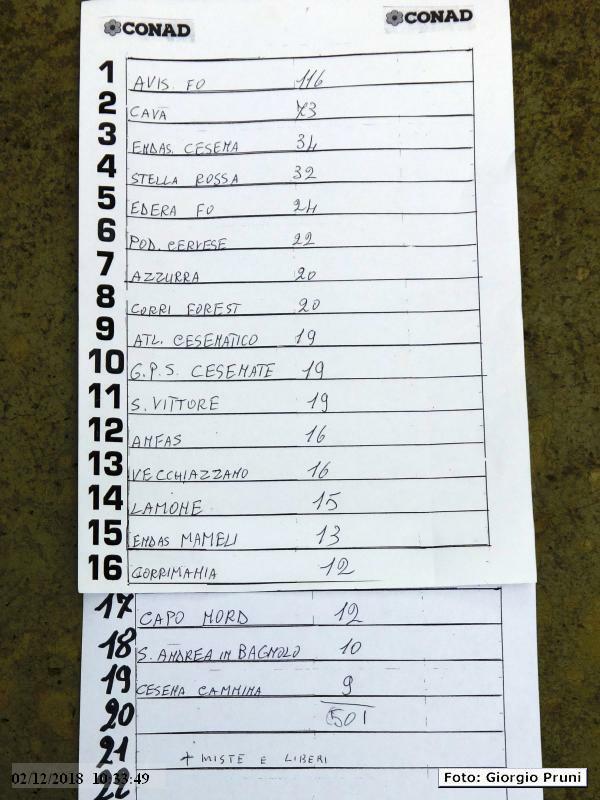 CONAD CONAD
1 AVIS. FO 116
2 CAVA 73
3 ENDAS. CESENA 34
4 STELLA ROSSA 32
5 EDERA FO 24
6 POD. CERVESE 22
7 AZZURRA 20
8 CORRI FOREST 20
9 ATL. CESENATICO 19
10 G.P.S. CESENATE 19
11 S. VITTORE 19
12 ANFAS 16
13 VECCHIAZZANO 16
14 LAMONE 15
15 ENDAS MAMELI 13
16 CORRIMANIA 12
17 CAPO NORD 12
18 S. ANDREA IN BAGNOLO 10
19 CESENA CAMMINA 9
20 501
21 + MISTE E LIBERI
22
02/12/2018 10:33:49
Foto: Giorgio Pruni